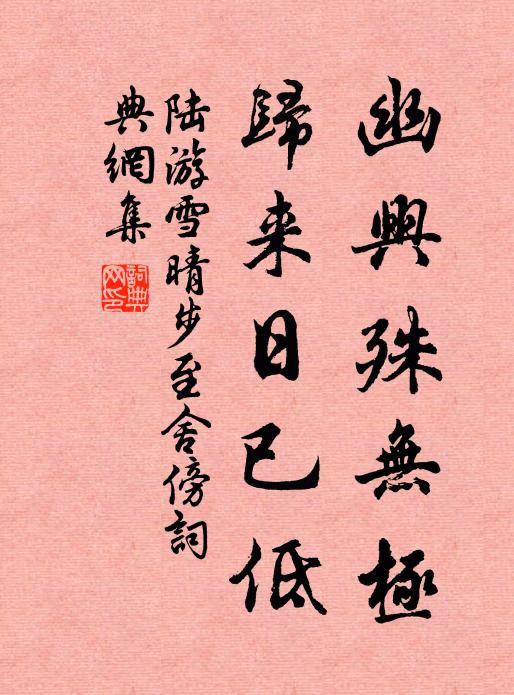 幽興殊無極
歸来日已低
陆游雪晴步至舍傍詞
典網集
詞典
网印